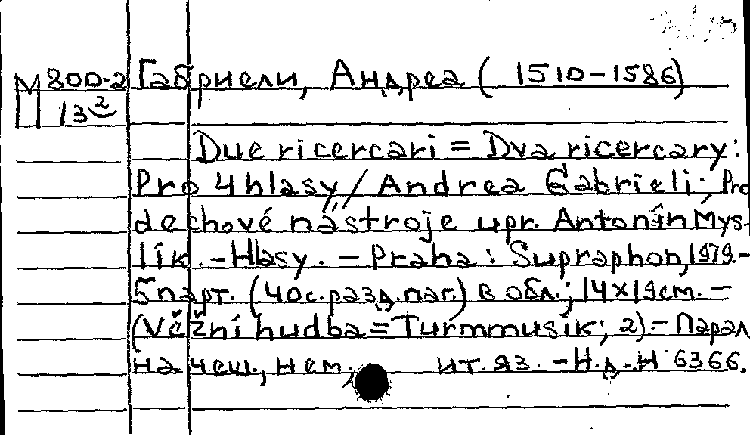 М 800-2 Габриели, Андреа (1510-1586)
13²
Due ricercari = Dva ricercary:
Pro 4 hlasy / Andrea Gabrieli; Pro
dechové nástroje upr. Antonín Mys-
lík. - Hlasy. - Praha: Supraphon, 1979.-
5 парт. (40 с. разд. паг.) в обл.; 14х19 см. -
(Věžní hudba = Turmmusik; 2) - Парал.
на чеш., нем., ит. яз. - Н.д. - Н 6366.